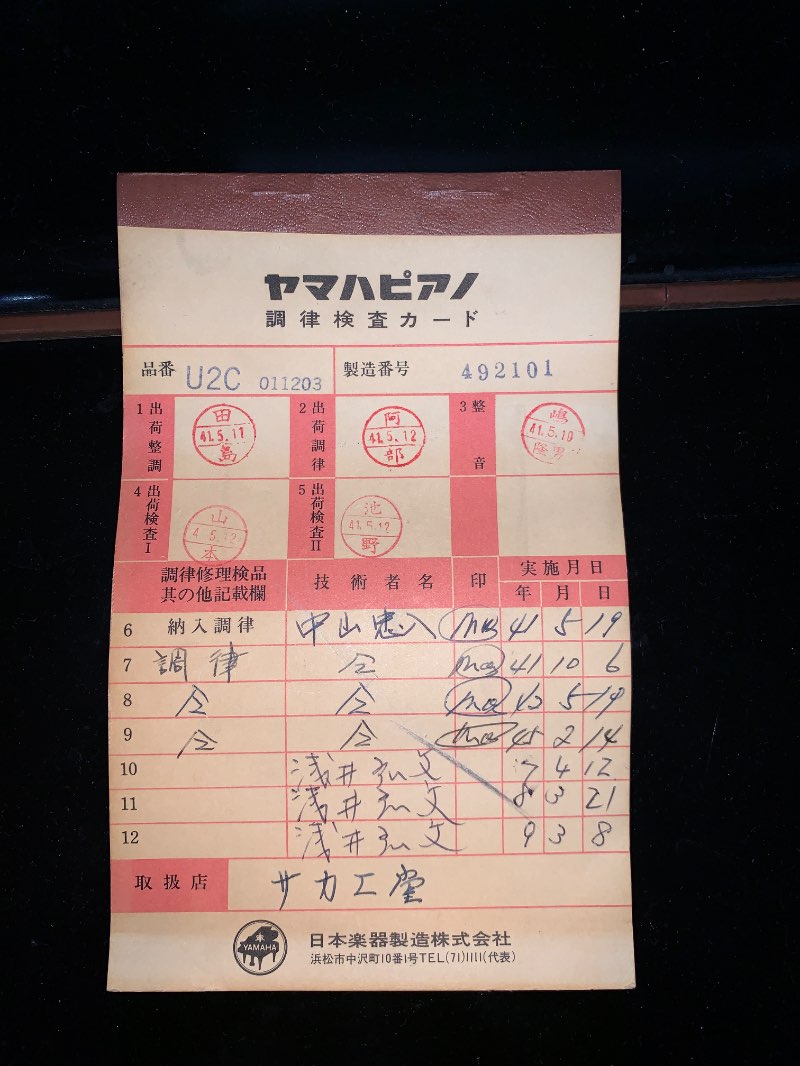 ヤマハピアノ
調律検査カード
品番 U2C 011203 製造番号 492101
1 出荷整調 田島 41.5.11 2 出荷調律 阿部 41.5.12 3 整音 嶋 41.5.10 隆男
4 出荷検査I 山本 4 5.12 5 出荷検査II 池野 41.5.12
調律修理検品其の他記載欄 技術者名 印 実施月日 年 月 日
6 納入調律 中山忠 41 5 19
7 調律 仝 41 10 6
8 仝 仝 43 5 19
9 仝 仝 45 2 14
10 浅井弘文 7 4 12
11 浅井弘文 8 3 21
12 浅井弘文 9 3 8
取扱店 サカエ堂
YAMAHA
日本楽器製造株式会社
浜松市中沢町10番1号TEL(71)1111(代表)